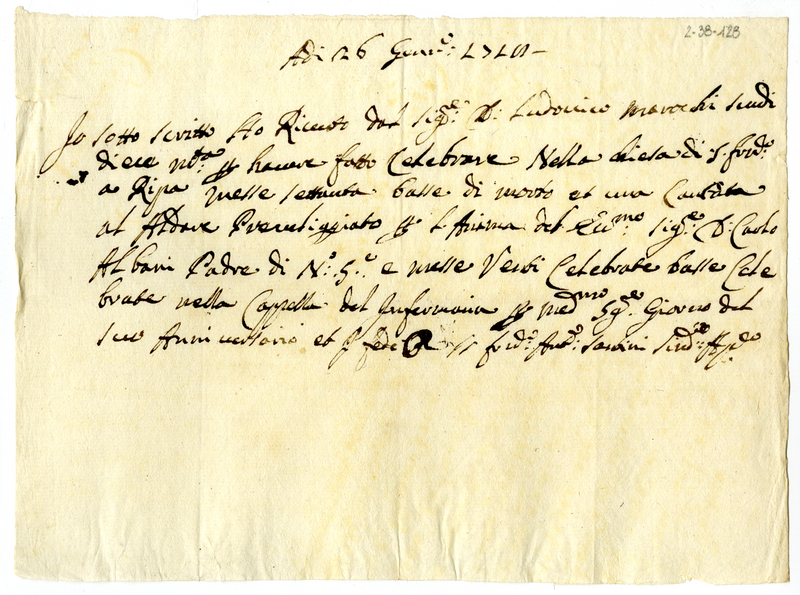 2-38-128
Adi 26 Genn.o: 1710 -
Io sotto scritto ho Riceuto dal sig.re: D: Ludovico Marochi scudi
diece m.ta p havere fatto Celebrare Nella chiesa di S. Frã.co:
a Ripa messe settanta basse di morto et una Cantata
al Altare Previligiato p l'Anima del Ecc.mo: Sig.re D: Carlo
Albani Padre di N.o: S.re: e messe Venti Celebrate basse Cele
brate nella Cappella del Infermaria p med.mo Sg.re Giorno del
suo Anniversario et p fede